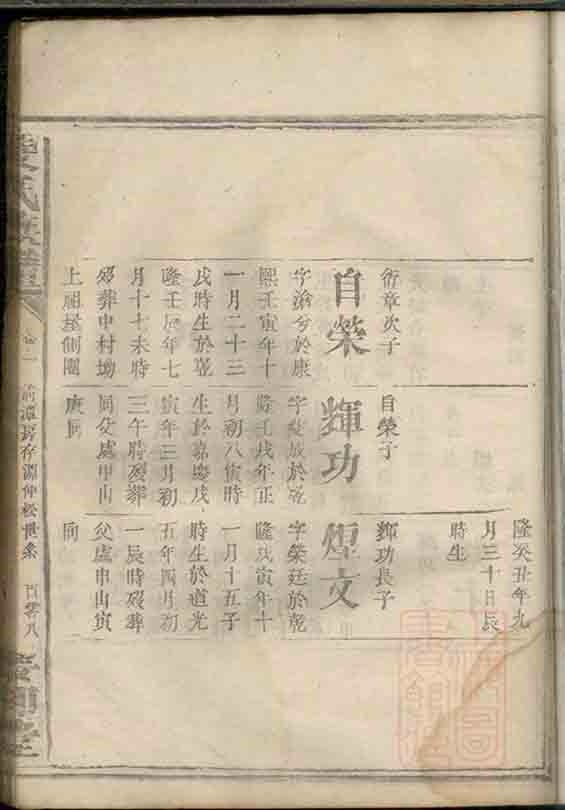 隆癸丑年九
月三十日辰
時生
衍章次子
自榮
字滄兮於康
熙壬寅年十
一月二十三
戌時生於乾
隆壬辰年七
月十七未時
歿葬中村坳
上祖屋側園
自榮子
輝功
於乾
隆壬戌年正
月初八寅時
生於嘉慶戊
寅年三月初
三午時歿葬
同父處甲山
庚向
輝功長子
煌文
字榮廷於乾
隆戊寅年十
一月十五子
時生於道光
五年四月初
一辰時歿葬
父處申山寅
向
氏族譜
卷
前潭房存源仲松世系
百零八